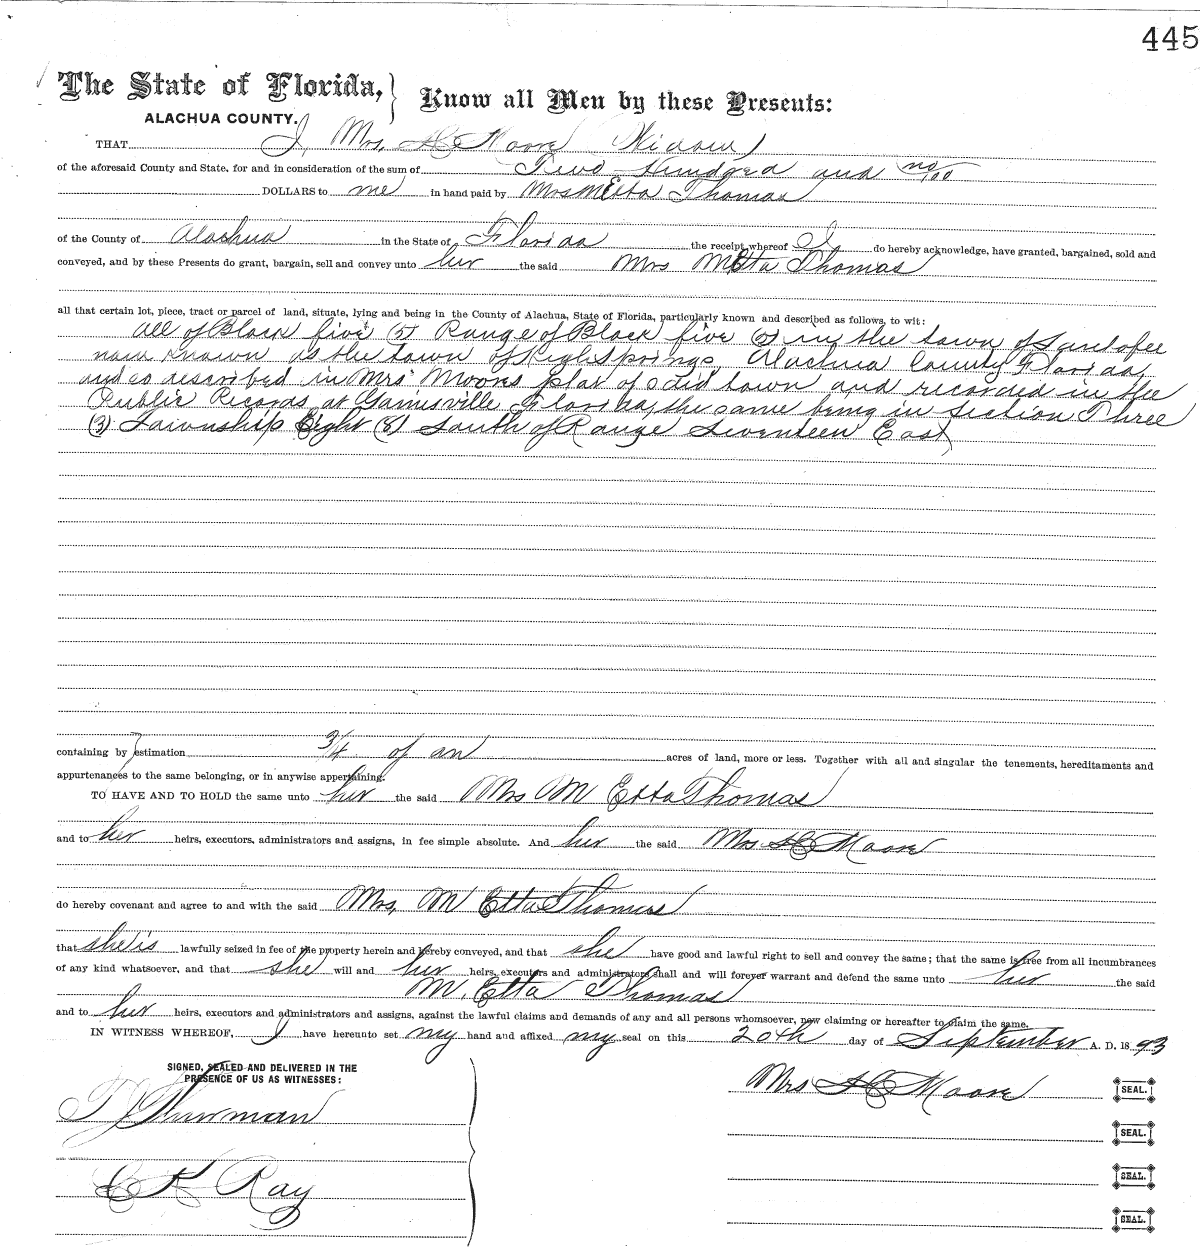 445
The State of Florida, } Know all Men by these Presents:
ALACHUA COUNTY.
THAT I, Mrs. H C Moore Widow
of the aforesaid County and State, for and in consideration of the sum of Two Hundred and no/100
DOLLARS to me in hand paid by Mrs M Etta Thomas
of the County of Alachua in the State of Florida the receipt whereof I do hereby acknowledge, have granted, bargained, sold and
conveyed, and by these Presents do grant, bargain, sell and convey unto her the said Mrs M Etta Thomas
all that certain lot, piece, tract or parcel of land, situate, lying and being in the County of Alachua, State of Florida, particularly known and described as follows, to wit:
all of Block five (5) Range of Block five (5) in the town of Santafee
now known as the town of High Springs, Alachua County Florida,
and as described in Mrs Moons plat of said town and recorded in the
Public Records at Gainesville Florida, the same being in Section Three
(3) Township Eight (8) South of Range Seventeen East
containing by estimation 3/4 of an acres of land, more or less. Together with all and singular the tenements, hereditaments and
appurtenances to the same belonging, or in anywise appertaining.
TO HAVE AND TO HOLD the same unto her the said Mrs M Etta Thomas
and to her heirs, executors, administrators and assigns, in fee simple absolute. And her the said Mrs H C Moore
do hereby covenant and agree to and with the said Mrs, M Etta Thomas
that she is lawfully seized in fee of the property herein and hereby conveyed, and that she have good and lawful right to sell and convey the same; that the same is free from all incumbrances
of any kind whatsoever, and that she will and her heirs, executors and administrators shall and will forever warrant and defend the same unto her the said
M. Etta Thomas
and to her heirs, executors and administrators and assigns, against the lawful claims and demands of any and all persons whomsoever, now claiming or hereafter to claim the same.
IN WITNESS WHEREOF, I have hereunto set my hand and affixed my seal on this 20th day of September A. D. 1893
SIGNED, SEALED AND DELIVERED IN THE
PRESENCE OF US AS WITNESSES:
Mrs H C Moore SEAL.
T J Thurman
SEAL.
C K Ray
SEAL.
SEAL.